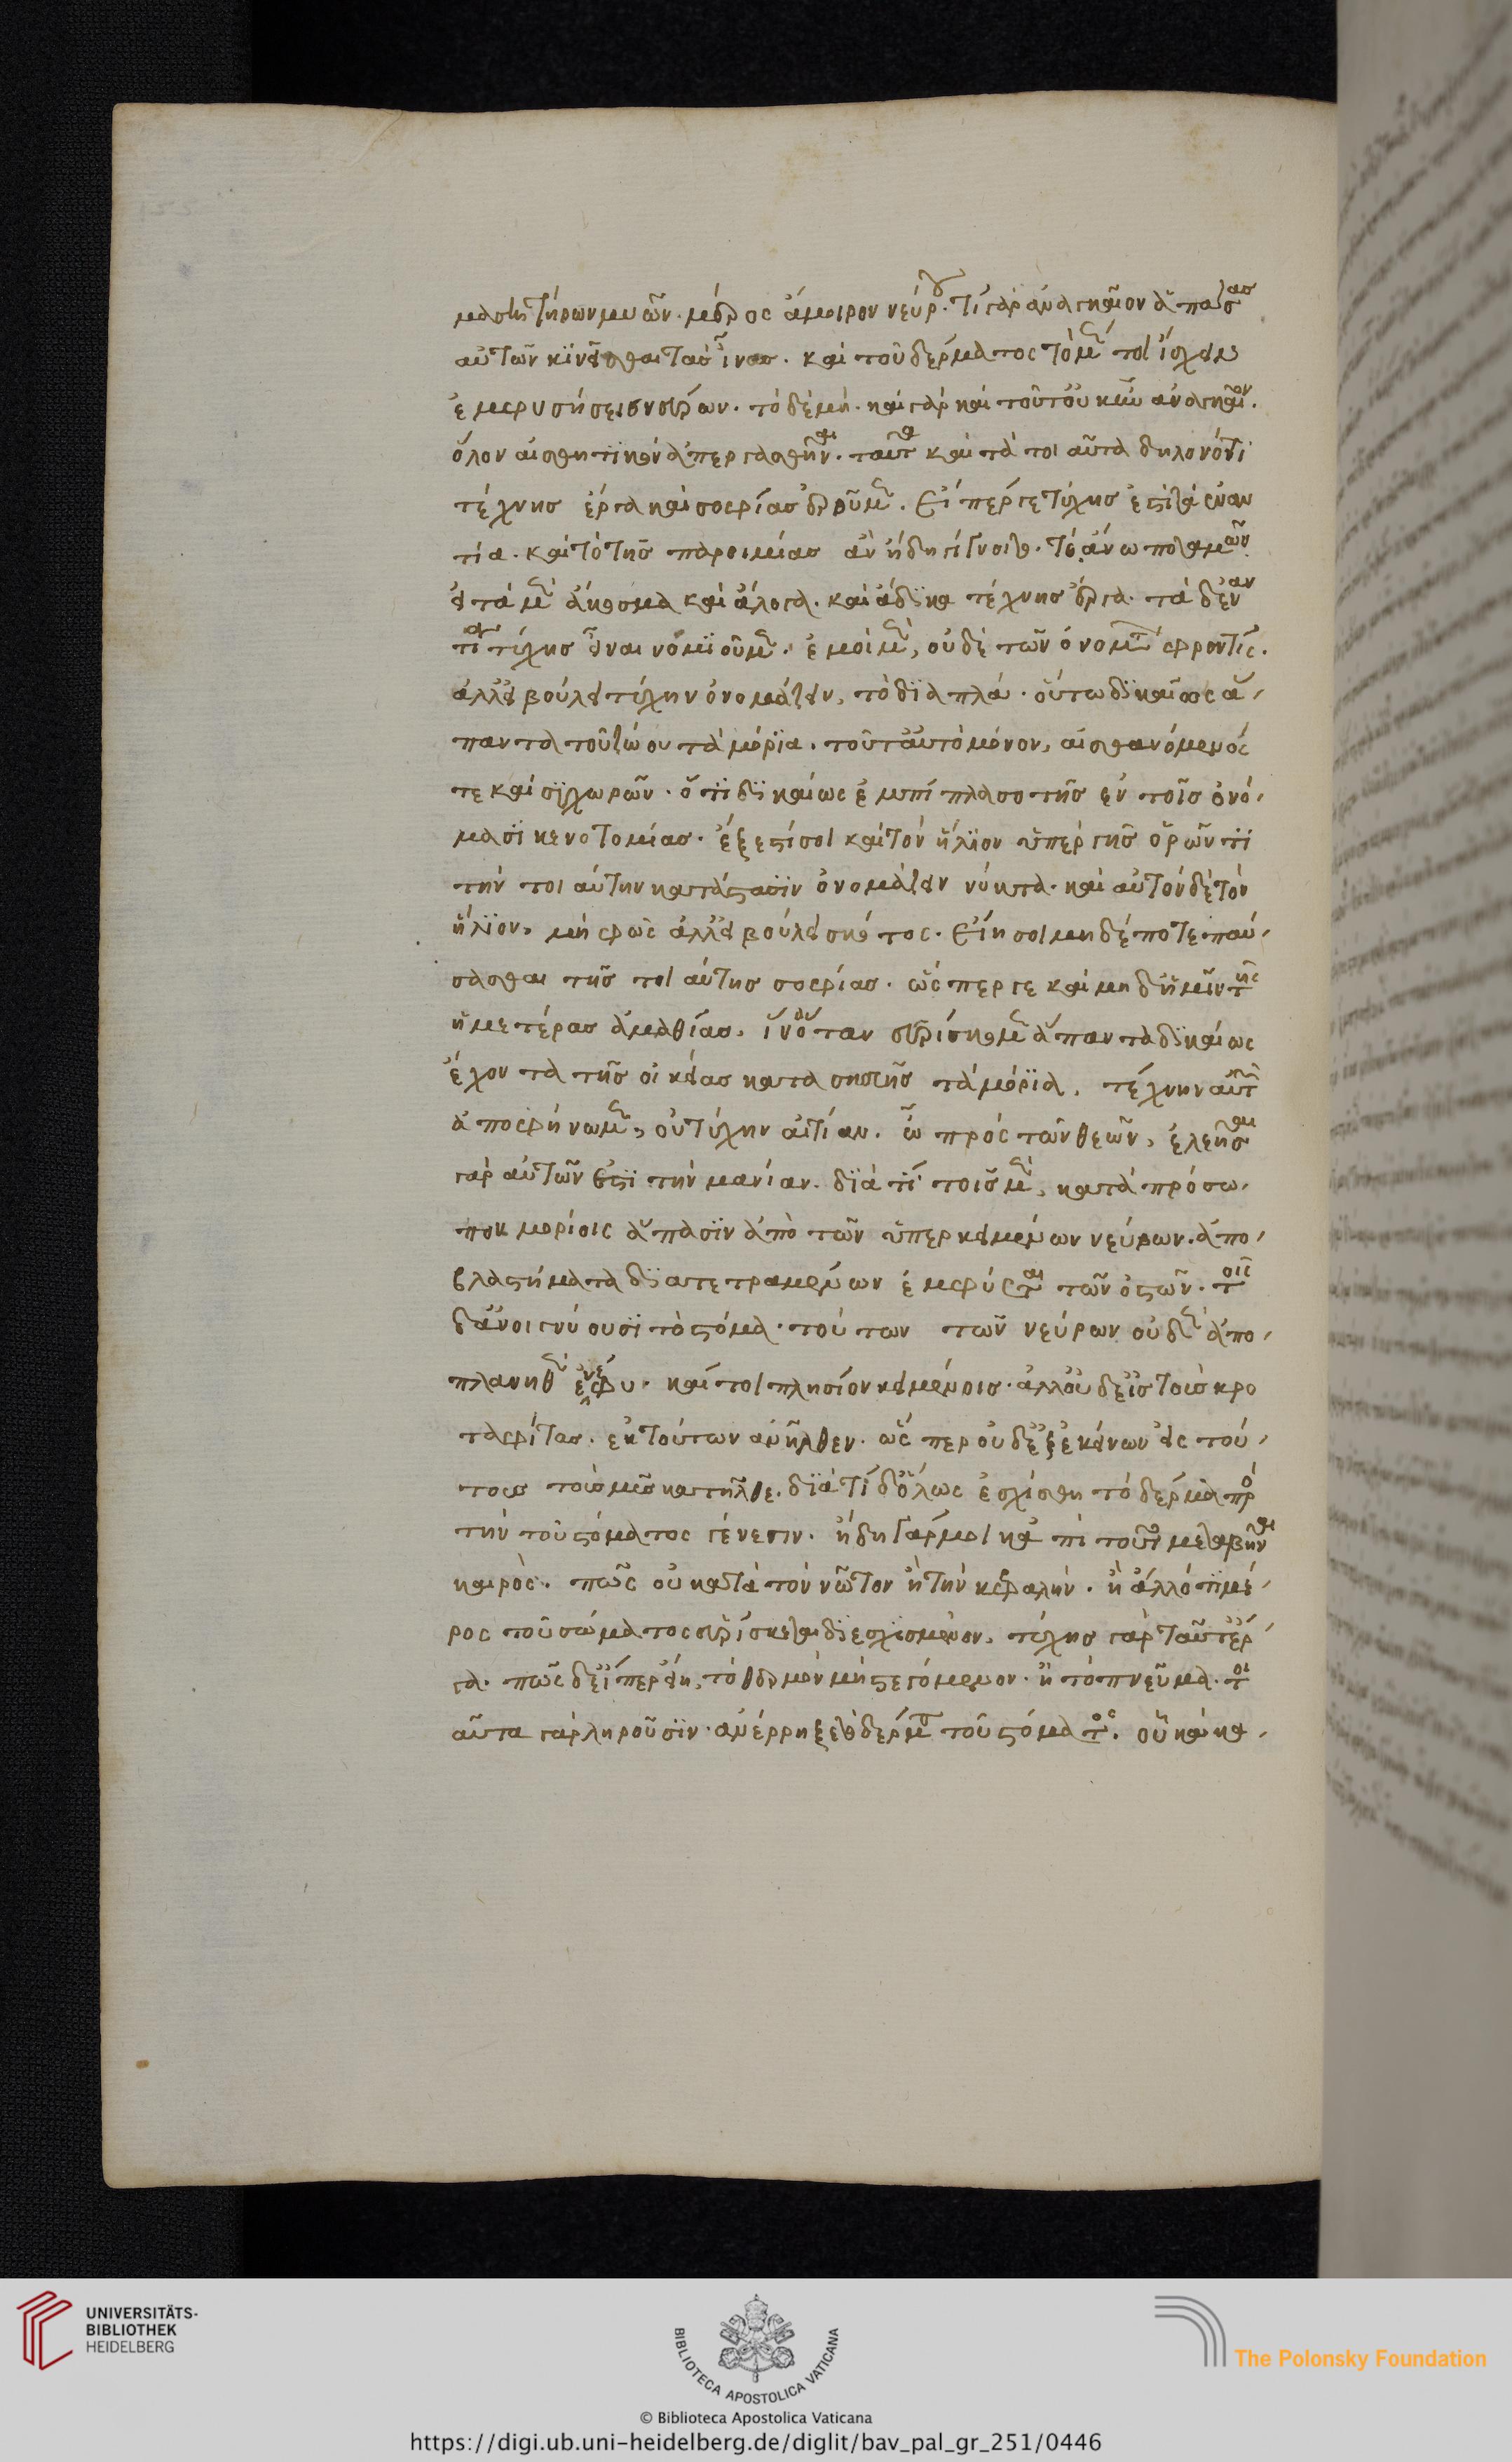 μασητήρων μυῶν. μέρος ἄμοιρον νεύρου. τί γὰρ ἀναγκαῖον ἁπάσας
αὐτῶν κινεῖσθαι τὰς ἶνας. καὶ τοῦ δέρματος τὸ μὲν τοι ἴσχειν
ἐμφυσήσεις νεύρων. τὸ δὲ μή. καὶ γὰρ καὶ τοῦτ' οὐκ ἦν ἀναγκαῖον.
ὅλον αἰσθητικὸν ἀπεργασθῆναι. ταῦτα καὶ τὰ τοιαῦτα δηλονότι
τέχνης ἔργα καὶ σοφίας ἐροῦμεν. εἴπερ γε τύχης ἐστὶ τὰ ἐναν
τία. καὶ τὸ τῆς παροιμίας ἂν ἤδη γίγνοιτο. τὸ ἄνω ποταμῶν
εἰ τὰ μὲν ἄκοσμα καὶ ἄλογα. καὶ ἄδικα τέχνης ἔργα. τὰ δ' ἐναν
τία τύχης εἶναι νομιοῦμεν. ἐμοὶ μὲν, οὐδὲ τῶν ὀνομάτων φροντίς.
ἀλλ' εἰ βούλει τύχην ὀνομάζειν, τὸ διαπλά. οὕτω δικαίως ἅ-
παντα τοῦ ζώου τὰ μόρια. τοῦτ' αὐτὸ μόνον, αἰσθανόμενός
τε καὶ συγχωρῶν. ὅτι δικαίως ἐμπίπλασο τῆς ἐν τοῖς ὀνό-
μασι κενοτομίας. ἔξεστί σοι καὶ τὸν ἥλιον ὑπὲρ γῆς ὁρῶντι
τὴν τοιαύτην κατάστασιν ὀνομάζειν νύκτα. καὶ αὐτὸν δὲ τὸν
ἥλιον, μὴ φῶς ἀλλ' εἰ βούλει σκότος. εἴη σοι μηδέποτε παύ-
σασθαι τῆς τοιαύτης σοφίας. ὥσπερ γε καὶ μηδ' ἡμῖν τῆς
ἡμετέρας ἀμαθίας, ἵν' ὅταν εὑρίσκωμεν ἅπαντα δικαίως
ἔχοντα τῆς οἰκείας κατασκευῆς τὰ μόρια, τέχνην αὐτῶν
ἀποφήνωμεν, οὐ τύχην αἰτίαν. ὦ πρὸς τῶν θεῶν, ἐλεῆσαι
γὰρ αὐτῶν ἐστι τὴν μανίαν. διὰ τί τοῖς μὲν, κατὰ πρόσω-
πον μορίοις ἅπασιν ἀπὸ τῶν ὑπερκειμένων νεύρων. ἀπο-
βλαστήματα διατετραμένων ἐμφύεται τῶν ὀστῶν. τοῖς
δ' ἀνοιγνύουσι τὸ στόμα. τούτων τῶν νεύρων οὐδὲν ἀπο-
πλανηθὲν ἐνέφυ. καί τοι πλησίον κειμένοις. ἀλλ' οὐδ' εἰς τοὺς κρο
ταφίτας. ἐκ τούτων ἀνῆλθεν. ὥσπερ οὐδ' ἐξ ἐκείνων εἰς τού-
τους τοὺς μῦς κατῆλθε. διὰ τί δ' ὅλως ἐσχίσθη τὸ δέρμα πρὸ
τὴν τοῦ στόματος γένεσιν. ἤδη γάρ μοι κἀπὶ τοῦτο μεταβῆναι
καιρὸς. πῶς οὐ κατὰ τὸν νῶτον ἢ τὴν κεφαλήν. ἢ ἄλλό τι μέ-
ρος τοῦ σώματος εὑρίσκεται διεσχισμένον, τύχης γὰρ ταῦτ' ἔρ
γα. πῶς δ' εἴπερ εἴη, τὸ θερμὸν μὴ στεγόμενον. ἢ τὸ πνεῦμα. τοι
αῦτα γὰρ ληροῦσιν. ἀνέρρηξε τὸ δέρμα τοῦ στόματος. οὐ κἀκ-
UNIVERSITÄTS-
BIBLIOTHEK
HEIDELBERG
BIBLIOTECA APOSTOLICA VATICANA
The Polonsky Foundation
© Biblioteca Apostolica Vaticana
https://digi.ub.uni-heidelberg.de/diglit/bav_pal_gr_251/0446